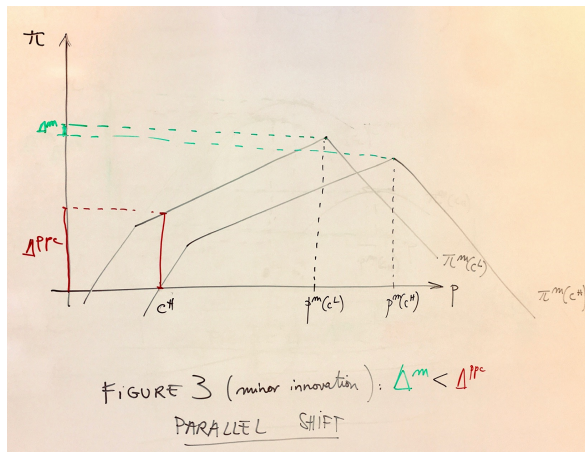 π
Δᵐ
Δᵖᵖᶜ
cᴴ
pᵐ(cᴸ)
pᵐ(cᴴ)
p
πᵐ(cᴸ)
πᵐ(cᴴ)
FIGURE 3 (minor innovation): Δᵐ < Δᵖᵖᶜ
PARALLEL SHIFT